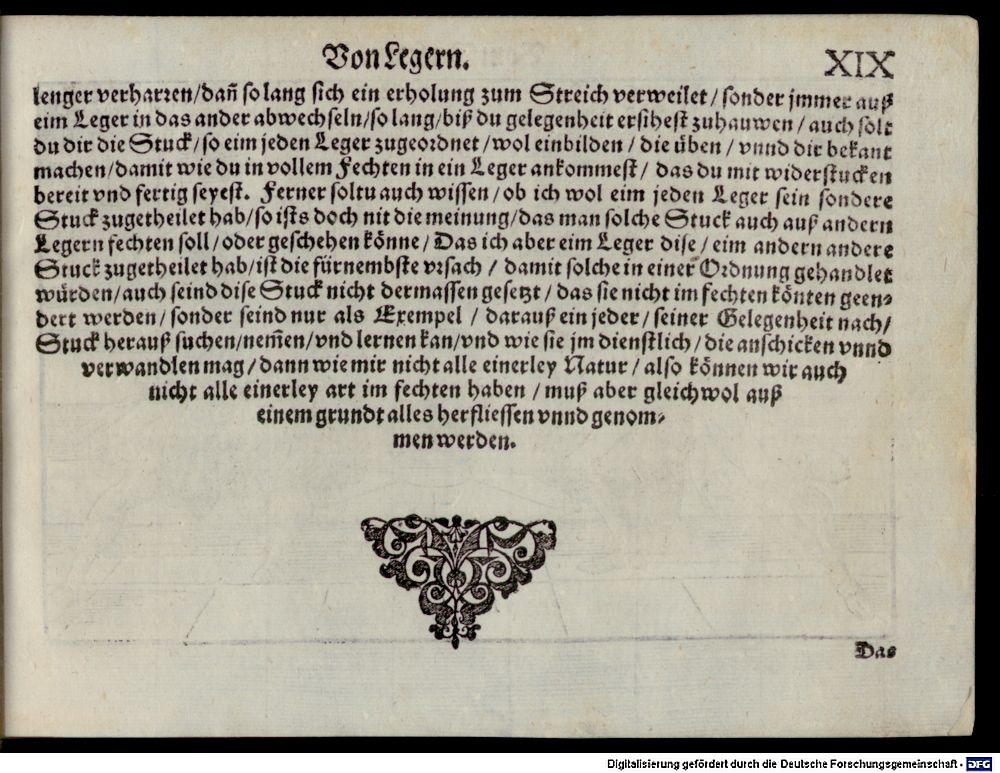 Von Legern.
XIX
lenger verharren/dañ so lang sich ein erholung zum Streich verweilet / sonder jmmer auß
eim Leger in das ander abwechseln/so lang/biß du gelegenheit ersihest zuhauwen / auch solt
du dir die Stuck/so eim jeden Leger zugeordnet /wol einbilden / die üben / vnnd dir bekant
machen/damit wie du in vollem Fechten in ein Leger ankommest / das du mit widerstucken
bereit vnd fertig seyest. Ferner soltu auch wissen / ob ich wol eim jeden Leger sein sondere
Stuck zugetheilet hab/so ists doch nit die meinung/das man solche Stuck auch auß andern
Legern fechten soll/oder geschehen könne/ Das ich aber eim Leger dise / eim andern andere
Stuck zugetheilet hab/ist die fürnembste vrsach / damit solche in einer Ordnung gehandlet
würden/auch seind dise Stuck nicht dermassen gesetzt / das sie nicht im fechten könten geen-
dert werden / sonder seind nur als Exempel / darauß ein jeder / seiner Gelegenheit nach/
Stuck herauß suchen/nem̄en/vnd lernen kan/vnd wie sie jm dienstlich / die anschicken vnnd
verwandlen mag/dann wie mir nicht alle einerley Natur/ also können wir auch
nicht alle einerley art im fechten haben / muß aber gleichwol auß
einem grundt alles herfliessen vnnd genom-
men werden.
Das
Digitalisierung gefördert durch die Deutsche Forschungsgemeinschaft - DFG